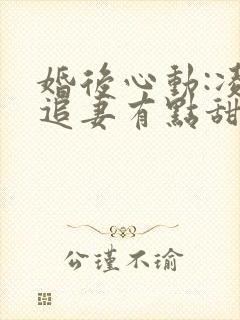 婚後心動:
追妻有點甜
公瑾不瑜